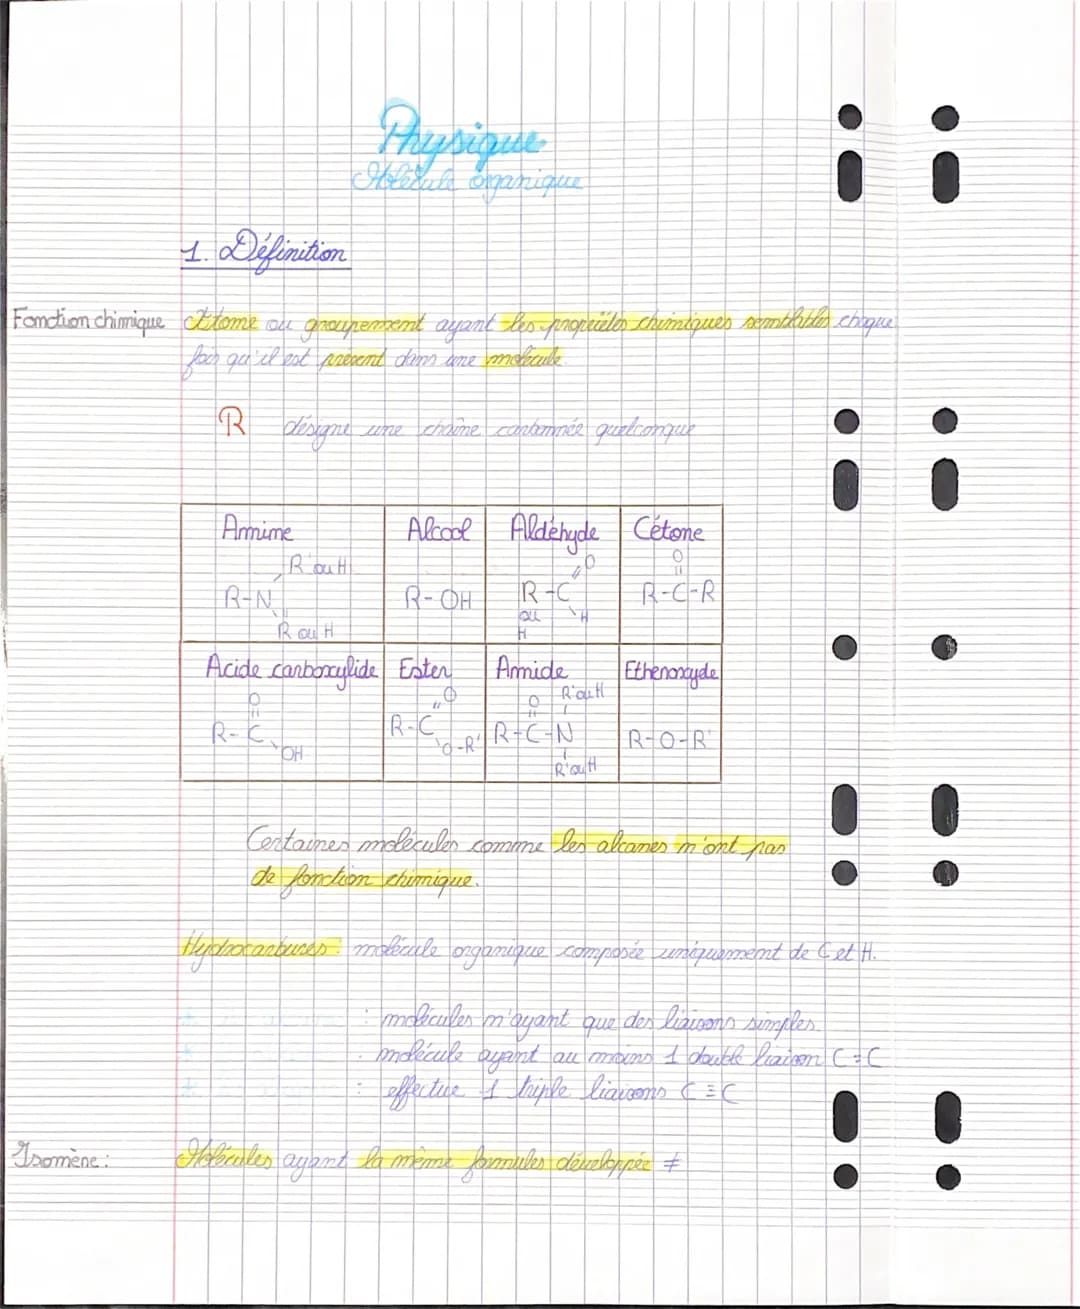 Physique
Molécule organique
1. Définition
Fonction chimique Atome ou groupement ayant les propriétés chimiques semblables chaque
fois qu'il est présent dans une molécule.
R désigne une chaîne carbonnée quelconque
Amine Alcool Aldéhyde Cétone
R'ou H O O
R-N R-OH R-C R-C-R
ou H
R ou H H
Acide carboxylide Ester Amide Ethenoxyde
O O O R'ou H
R-C R-C R-C-N R-O-R'
OH O-R' R'ou H
Certaines molécules comme les alcanes n'ont pas
de fonction chimique.
Hydrocarbures : molécule organique composée uniquement de C et H.
* : molécules n'ayant que des liaisons simples
* : molécule ayant au moins 1 double liaison C=C
* : effectue 1 triple liaisons C≡C
Isomène : Molécules ayant la même formules développée ≠